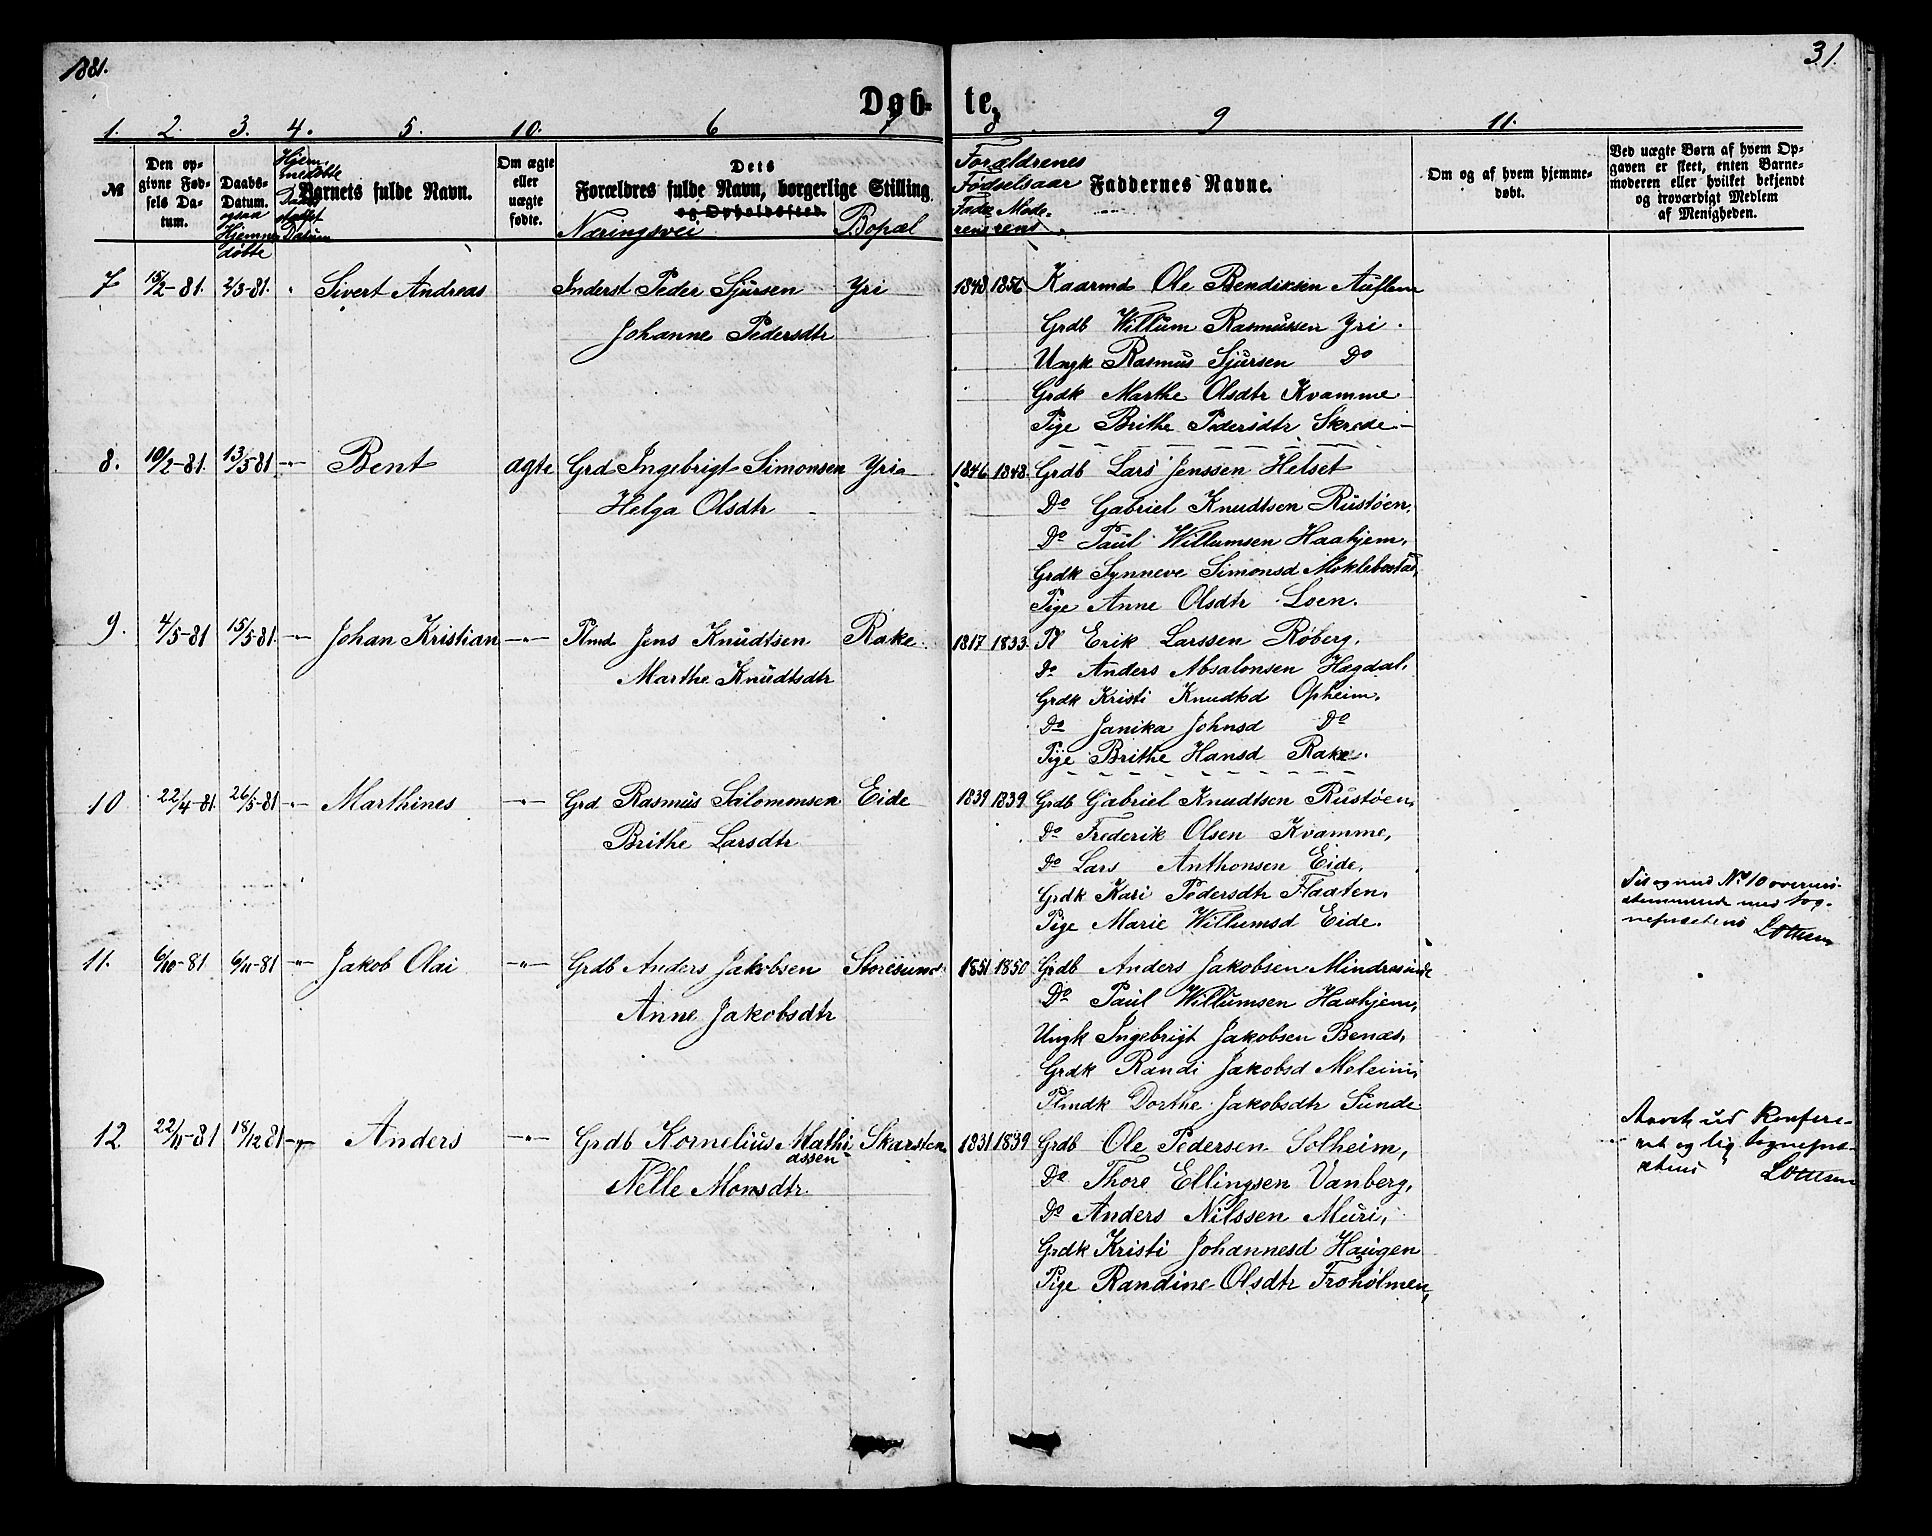 1881.
31.
Døb-
te.
1. 2. 3. 4. 5. 10. 6 7 8 9 11.
№
Den opgivne Fødsels Datum.
Daabs-Datum.
ogsaa Hjemmedøbte
Hjemmedøbte Daabsattest Datum
Barnets fulde Navn.
Om ægte eller uægte fødte.
Dets Forældres fulde Navn, borgerlige Stilling
og Opholdssted.
Næringsvei
Bopæl
Forældrenes Fødselsaar
Faderens Moderens
Faddernes Navne.
Om og af hvem hjemmedøbt.
Ved uægte Børn af hvem Opgaven er skeet, enten Barnemoderen eller hvilket bekjendt og troværdigt Medlem af Menigheden.
7 15/2-81. 2/3-81. Sivert Andreas Inderst Peder Sjursen Yri 1848 1856 Kaarmd Ole Bendiksen Auflem
Johanne Pedersdtr Grdb Willum Rasmussen Yri.
Ungk Rasmus Sjursen Do
Grdk Marthe Olsdtr Kvamme
Pige Brithe Pedersdtr Skrede
8. 10/2-81. 13/5 81 -"- Bent ægte Grd Ingebrigt Simonsen Yri 1846 1848. Grdb Lars Jenssen Helset
Helga Olsdtr Do Gabriel Knudtsen Rustøen,
Do Paul Willumsen Haahjem,
Grdk Synneve Simonsd Moklebostad,
Pige Anne Olsdtr Loen.
9. 4/5-81 15/5-81. -"- Johan Kristian -"- Plmd Jens Knudtsen Rake 1817 1833. Pl Erik Larssen Røberg,
Marthe Knudtsdtr Do Anders Absalonsen Hægdal,
Grdk Kristi Knudtsd Opheim,
Do Janika Johnsd Do
Pige Brithe Hansd Rake.
10 22/4-81. 26/5-81 -"- Marthines -"- Grd Rasmus Salomonsen Eide 1839 1839 Grdb Gabriel Knudtsen Rustøen,
Brithe Larsdtr Do Frederik Olsen Kvamme,
Do Lars Anthonsen Eide,
Grdk Kari Pedersdtr Flaaten,
Pige Marie Willumsd Eide.
Til og med No 10 overensstemmende med Sognepræstens
11. 6/10-81 6/11-81 -"- Jakob Olai -"- Grdb Anders Jakobsen Storesunde 1851 1850 Grdb Anders Jakobsen Mindresunde
Anne Jakobsdtr Do Paul Willumsen Haahjem,
Ungk Ingebrigt Jakobsen Benæs,
Grdk Randi Jakobsd
Plmdk Dorthe Jakobsdtr Sunde
12 22/11-81 18/12 81 -"- Anders -"- Grdb Kornelius Mathiassen Skarsten 1831 1839 Grdb Ole Pedersen Solheim,
Pelle Monsdtr. Do Thore Ellingsen Vanberg,
Do Anders Nilssen Muri,
Grdk Kristi Johannesd Haugen
Pige Randine Olsdtr Froholmen,